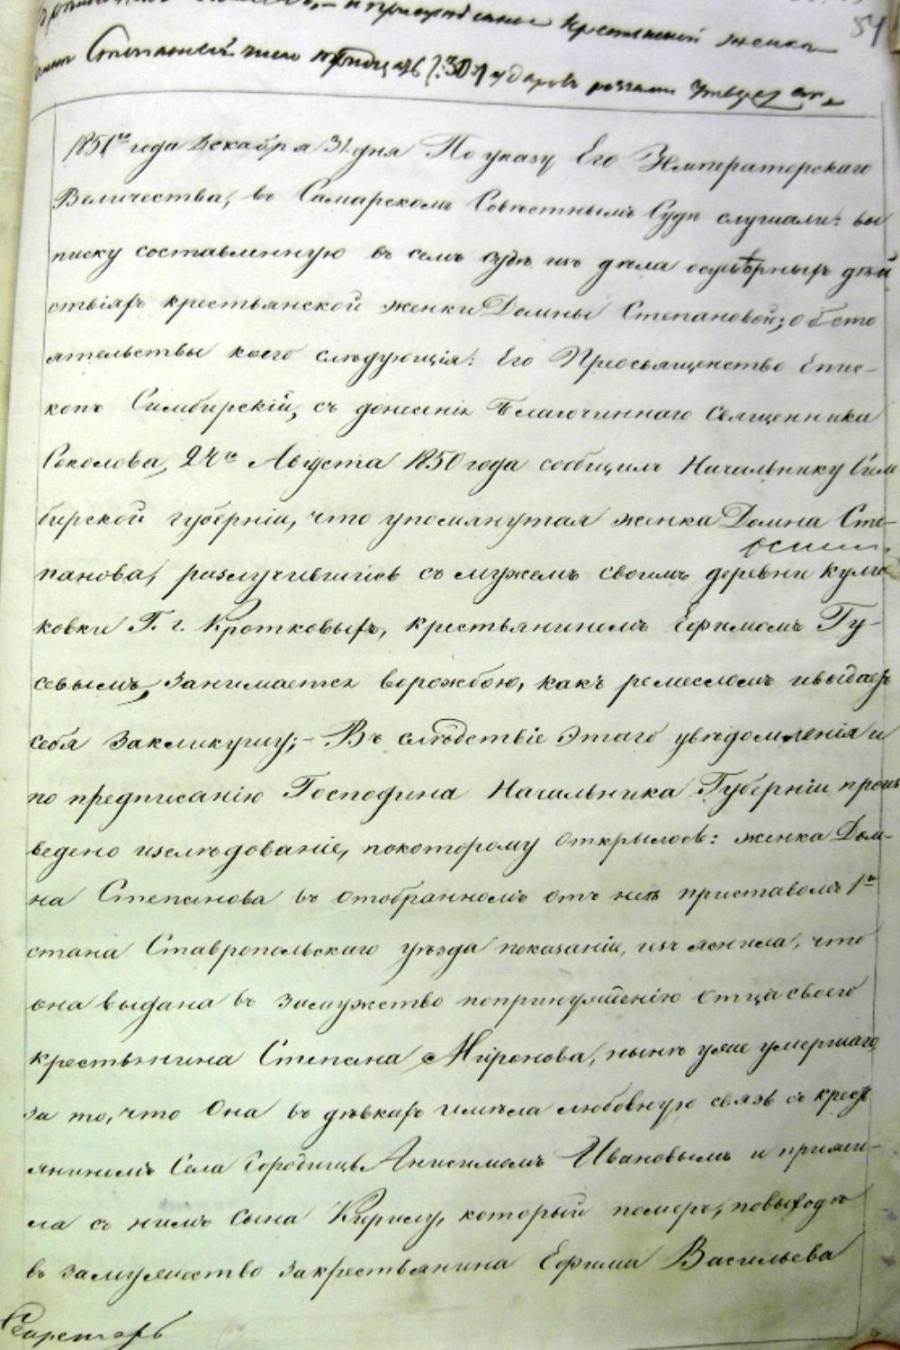 и присуждение крестьянской женки 54
Степановой числомъ тридцать (:30:) ударовъ розгами утвердить.
1851го года Декабря 31 дня По указу Его Императорскаго
Величества, въ Самарскомъ Совѣстнымъ Судѣ слушали: вы
писку составленную въ семъ судѣ изъ дѣла осуевѣрныхъ дѣй
ствіяхъ крестьянской женки Домны Степановой; обсто
ятельствы коего слѣдующія: Его Преосвященство Епис-
копъ Симбирскій, съ донесенія Благочиннаго Священника
Соколова, 24го Августа 1850 года сообщилъ Начальнику Сим
бирской губерніи, что упомянутая женка Домна Сте-
панова, разлучившись съ мужемъ своимъ деревни
ковки Г. г. Кротковыхъ, крестьяниномъ Ефимомъ Гу-
севымъ, занимается ворожбою, какъ ремесломъ ивыдаетъ
себя закликушу;- Въ слѣдствіе этаго увѣдомленія и
по предписанію Господина Начальника Губерніи произ
ведено изслѣдованіе, покоторому открылось: женка Дом-
на Степанова въ отобранномъ отъ неѣ приставомъ 1го
стана Ставропольскаго уѣзда показаніи, изъяснила, что
она выдана въ замужство попринужденію отца своего
крестьянина Степана Миронова, нынѣ уже умершаго,
за то, что она въ дѣвкахъ имѣла любовную связь съ крест
яниномъ Села Городищъ Анисимомъ Ивановымъ и прижи-
ла съ нимъ сына Кирилу, который померъ, повыходѣ
въ замужество закрестьянина Ефима Васильева
Секретарь